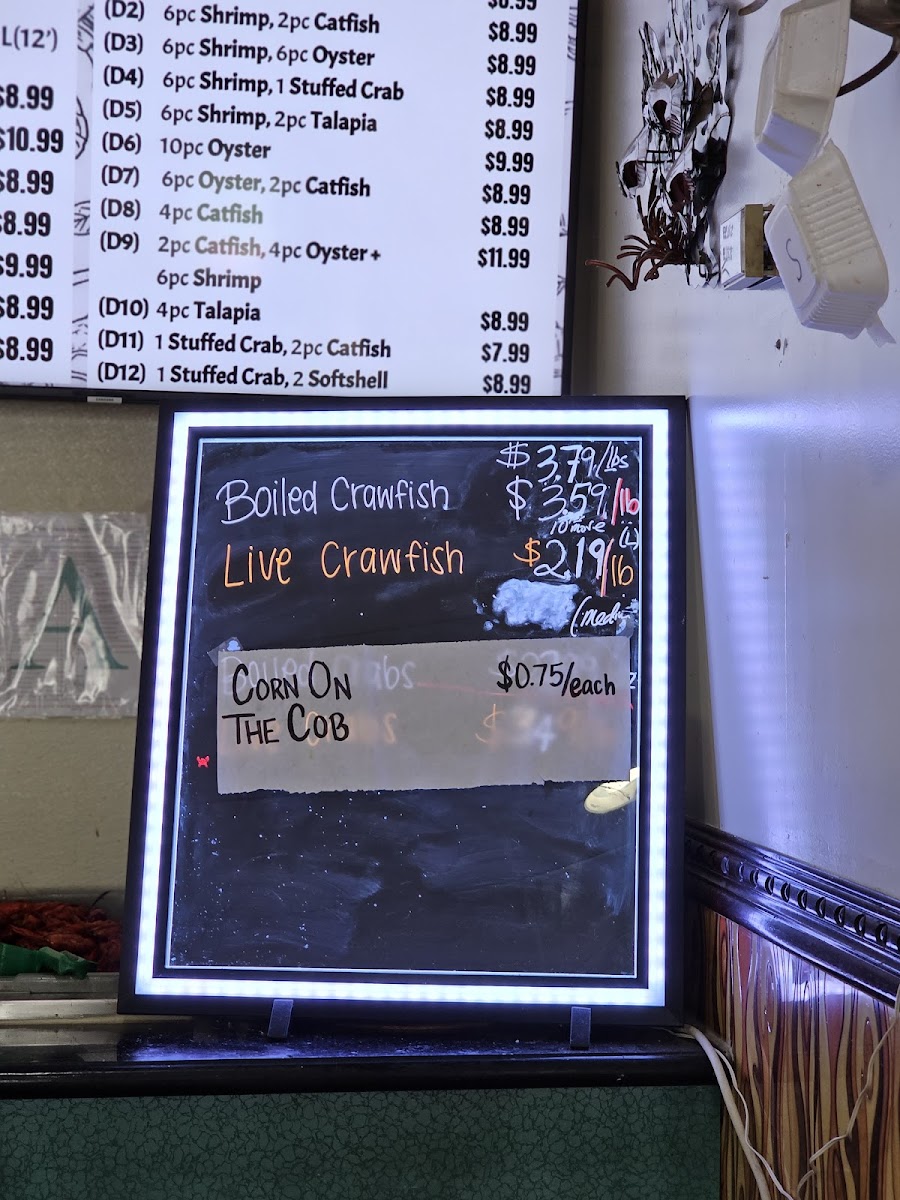 L(12')
$8.99
$10.99
$8.99
$8.99
$9.99
$8.99
$8.99
$8.99
(D2) 6pc Shrimp, 2pc Catfish $8.99
(D3) 6pc Shrimp, 6pc Oyster $8.99
(D4) 6pc Shrimp, 1 Stuffed Crab $8.99
(D5) 6pc Shrimp, 2pc Talapia $8.99
(D6) 10pc Oyster $9.99
(D7) 6pc Oyster, 2pc Catfish $8.99
(D8) 4pc Catfish $8.99
(D9) 2pc Catfish, 4pc Oyster + $11.99
6pc Shrimp
(D10) 4pc Talapia $8.99
(D11) 1 Stuffed Crab, 2pc Catfish $7.99
(D12) 1 Stuffed Crab, 2 Softshell $8.99
$3.79/lbs
Boiled Crawfish $3.59/lb
10 more (L)
Live Crawfish $2.19/lb
CORN ON $0.75/each
THE COB
A
S